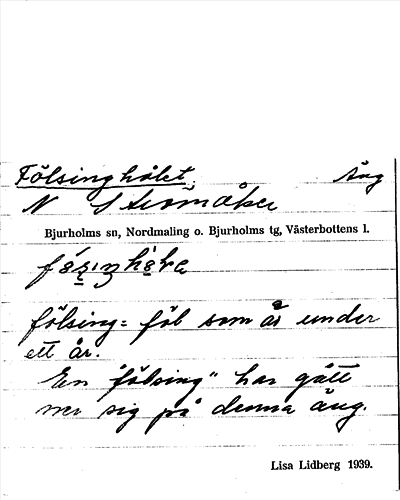 Fölsinghålet, Äng
N Stromåker
Bjurholms sn, Nordmaling o. Bjurholms tg, Västerbottens l.
fölsing = föl som är under
ett år.
En "fölsing" har gått
ner sig på denna äng.
Lisa Lidberg 1939.